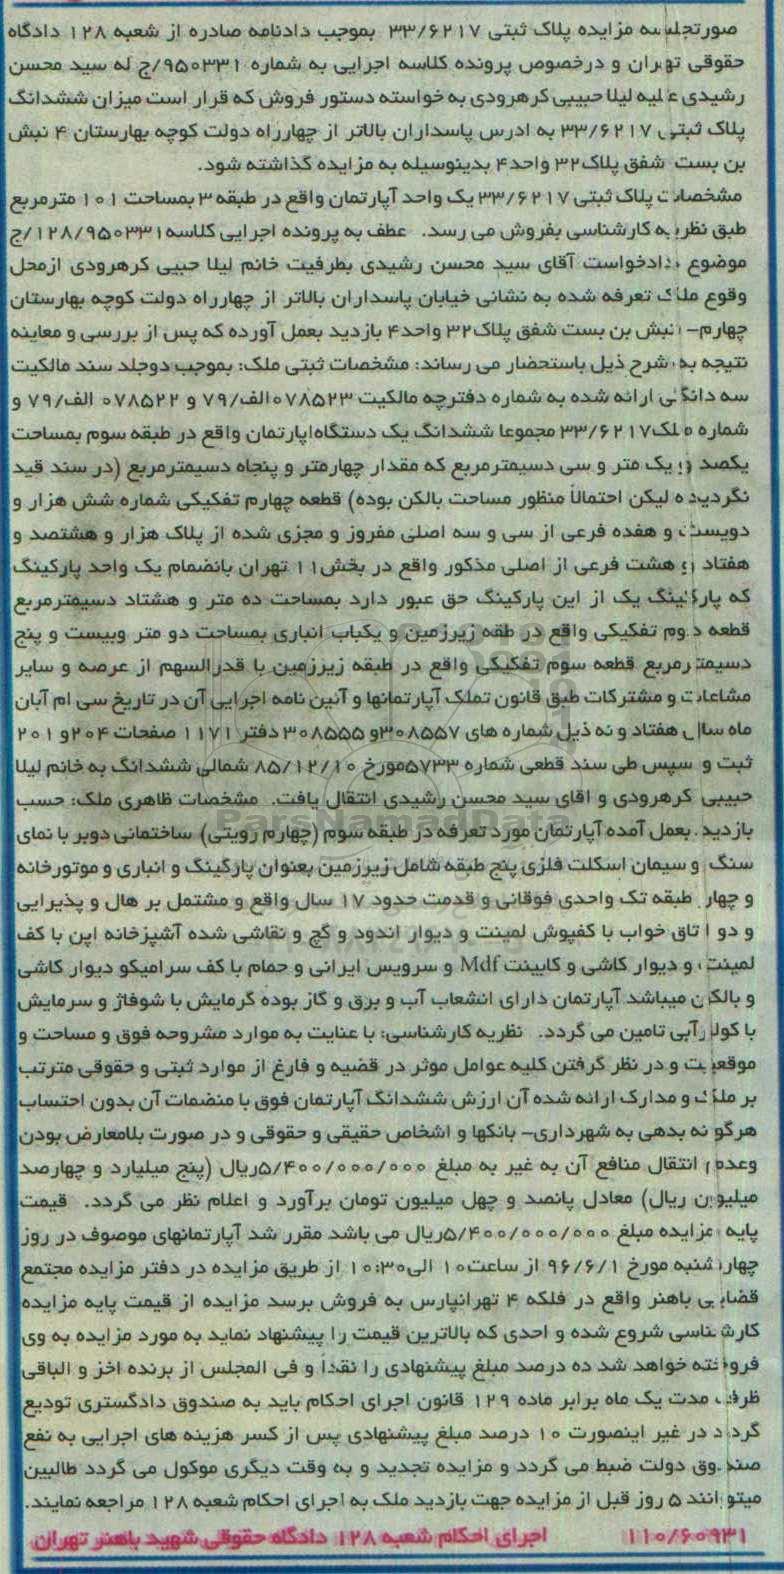 صورتجلسه مزایده پلاک ثبتی ۳۳/۶۲۱۷ بموجب دادنامه صادره از شعبه ۱۲۸ دادگاه
حقوقی تهران و درخصوص پرونده کلاسه اجرایی به شماره ۹۵۰۳۳۱/ج له سید محسن
رشیدی علیه لیلا حبیبی کرهرودی به خواسته دستور فروش که قرار است میزان ششدانگ
پلاک ثبتی ۳۳/۶۲۱۷ به ادرس پاسداران بالاتر از چهارراه دولت کوچه بهارستان ۴ نبش
بن بست شفق پلاک۳۲ واحد۴ بدینوسیله به مزایده گذاشته شود.
مشخصات پلاک ثبتی ۳۳/۶۲۱۷ یک واحد آپارتمان واقع در طبقه ۳ بمساحت ۱۰۱ مترمربع
طبق نظریه کارشناسی بفروش می رسد. عطف به پرونده اجرایی کلاسه۱۲۸/۹۵۰۳۳۱/ج
موضوع دادخواست آقای سید محسن رشیدی بطرفیت خانم لیلا حبیبی کرهرودی ازمحل
وقوع ملک تعرفه شده به نشانی خیابان پاسداران بالاتر از چهارراه دولت کوچه بهارستان
چهارم- نبش بن بست شفق پلاک۳۲ واحد۴ بازدید بعمل آورده که پس از بررسی و معاینه
نتیجه به شرح ذیل باستحضار می رساند: مشخصات ثبتی ملک: بموجب دوجلد سند مالکیت
سه دانگی ارائه شده به شماره دفترچه مالکیت ۰۷۸۵۲۳الف/۷۹ و ۰۷۸۵۲۲ الف/۷۹ و
شماره ملک۳۳/۶۲۱۷ مجموعا ششدانگ یک دستگاه‌اپارتمان واقع در طبقه سوم بمساحت
یکصد و یک متر و سی دسیمترمربع که مقدار چهارمتر و پنجاه دسیمترمربع (در سند قید
نگردیده لیکن احتمالاً منظور مساحت بالکن بوده) قطعه چهارم تفکیکی شماره شش هزار و
دویست و هفده فرعی از سی و سه اصلی مفروز و مجزی شده از پلاک هزار و هشتصد و
هفتاد و هشت فرعی از اصلی مذکور واقع در بخش۱۱ تهران بانضمام یک واحد پارکینگ
که پارکینگ یک از این پارکینگ حق عبور دارد بمساحت ده متر و هشتاد دسیمترمربع
قطعه دوم تفکیکی واقع در طقه زیرزمین و یکباب انباری بمساحت دو متر وبیست و پنج
دسیمترمربع قطعه سوم تفکیکی واقع در طبقه زیرزمین با قدرالسهم از عرصه و سایر
مشاعات و مشترکات طبق قانون تملک آپارتمانها و آئین نامه اجرایی آن در تاریخ سی ام آبان
ماه سال هفتاد و نه ذیل شماره های ۳۰۸۵۵۷و ۳۰۸۵۵۵ دفتر ۱۱۷۱ صفحات ۲۰۴و ۲۰۱
ثبت و سپس طی سند قطعی شماره ۵۷۳۳مورخ ۸۵/۱۲/۱۰ شمالی ششدانگ به خانم لیلا
حبیبی کرهرودی و اقای سید محسن رشیدی انتقال یافت. مشخصات ظاهری ملک: حسب
بازدید بعمل آمده آپارتمان مورد تعرفه در طبقه سوم (چهارم رویتی) ساختمانی دوبر با نمای
سنگ و سیمان اسکلت فلزی پنج طبقه شامل زیرزمین بعنوان پارکینگ و انباری و موتورخانه
و چهار طبقه تک واحدی فوقانی و قدمت حدود ۱۷ سال واقع و مشتمل بر هال و پذیرایی
و دو اتاق خواب با کفپوش لمینت و دیوار اندود و گچ و نقاشی شده آشپزخانه اپن با کف
لمینت و دیوار کاشی و کابینت Mdf و سرویس ایرانی و حمام با کف سرامیکو دیوار کاشی
و بالکن میباشد آپارتمان دارای انشعاب آب و برق و گاز بوده گرمایش با شوفاژ و سرمایش
با کولرآبی تامین می گردد. نظریه کارشناسی: با عنایت به موارد مشروحه فوق و مساحت و
موقعیت و در نظر گرفتن کلیه عوامل موثر در قضیه و فارغ از موارد ثبتی و حقوقی مترتب
بر ملک و مدارک ارائه شده آن ارزش ششدانگ آپارتمان فوق با منضمات آن بدون احتساب
هرگونه بدهی به شهرداری- بانکها و اشخاص حقیقی و حقوقی و در صورت بلامعارض بودن
وعدم انتقال منافع آن به غیر به مبلغ ۵/۴۰۰/۰۰۰/۰۰۰ریال (پنج میلیارد و چهارصد
میلیون ریال) معادل پانصد و چهل میلیون تومان برآورد و اعلام نظر می گردد. قیمت
پایه مزایده مبلغ ۵/۴۰۰/۰۰۰/۰۰۰ریال می باشد مقرر شد آپارتمانهای موصوف در روز
چهارشنبه مورخ ۹۶/۶/۱ از ساعت۱۰ الی۱۰:۳۰ از طریق مزایده در دفتر مزایده مجتمع
قضایی باهنر واقع در فلکه ۴ تهرانپارس به فروش برسد مزایده از قیمت پایه مزایده
کارشناسی شروع شده و احدی که بالاترین قیمت را پیشنهاد نماید به مورد مزایده به وی
فروخته خواهد شد ده درصد مبلغ پیشنهادی را نقداً و فی المجلس از برنده اخز و الباقی
ظرف مدت یک ماه برابر ماده ۱۲۹ قانون اجرای احکام باید به صندوق دادگستری تودیع
گردد در غیر اینصورت ۱۰ درصد مبلغ پیشنهادی پس از کسر هزینه های اجرایی به نفع
صندوق دولت ضبط می گردد و مزایده تجدید و به وقت دیگری موکول می گردد طالبین
میتوانند ۵ روز قبل از مزایده جهت بازدید ملک به اجرای احکام شعبه ۱۲۸ مراجعه نمایند.
۱۱۰/۶۰۹۳۱ اجرای احکام شعبه ۱۲۸ دادگاه حقوقی شهید باهنر تهران
ParsNamadData